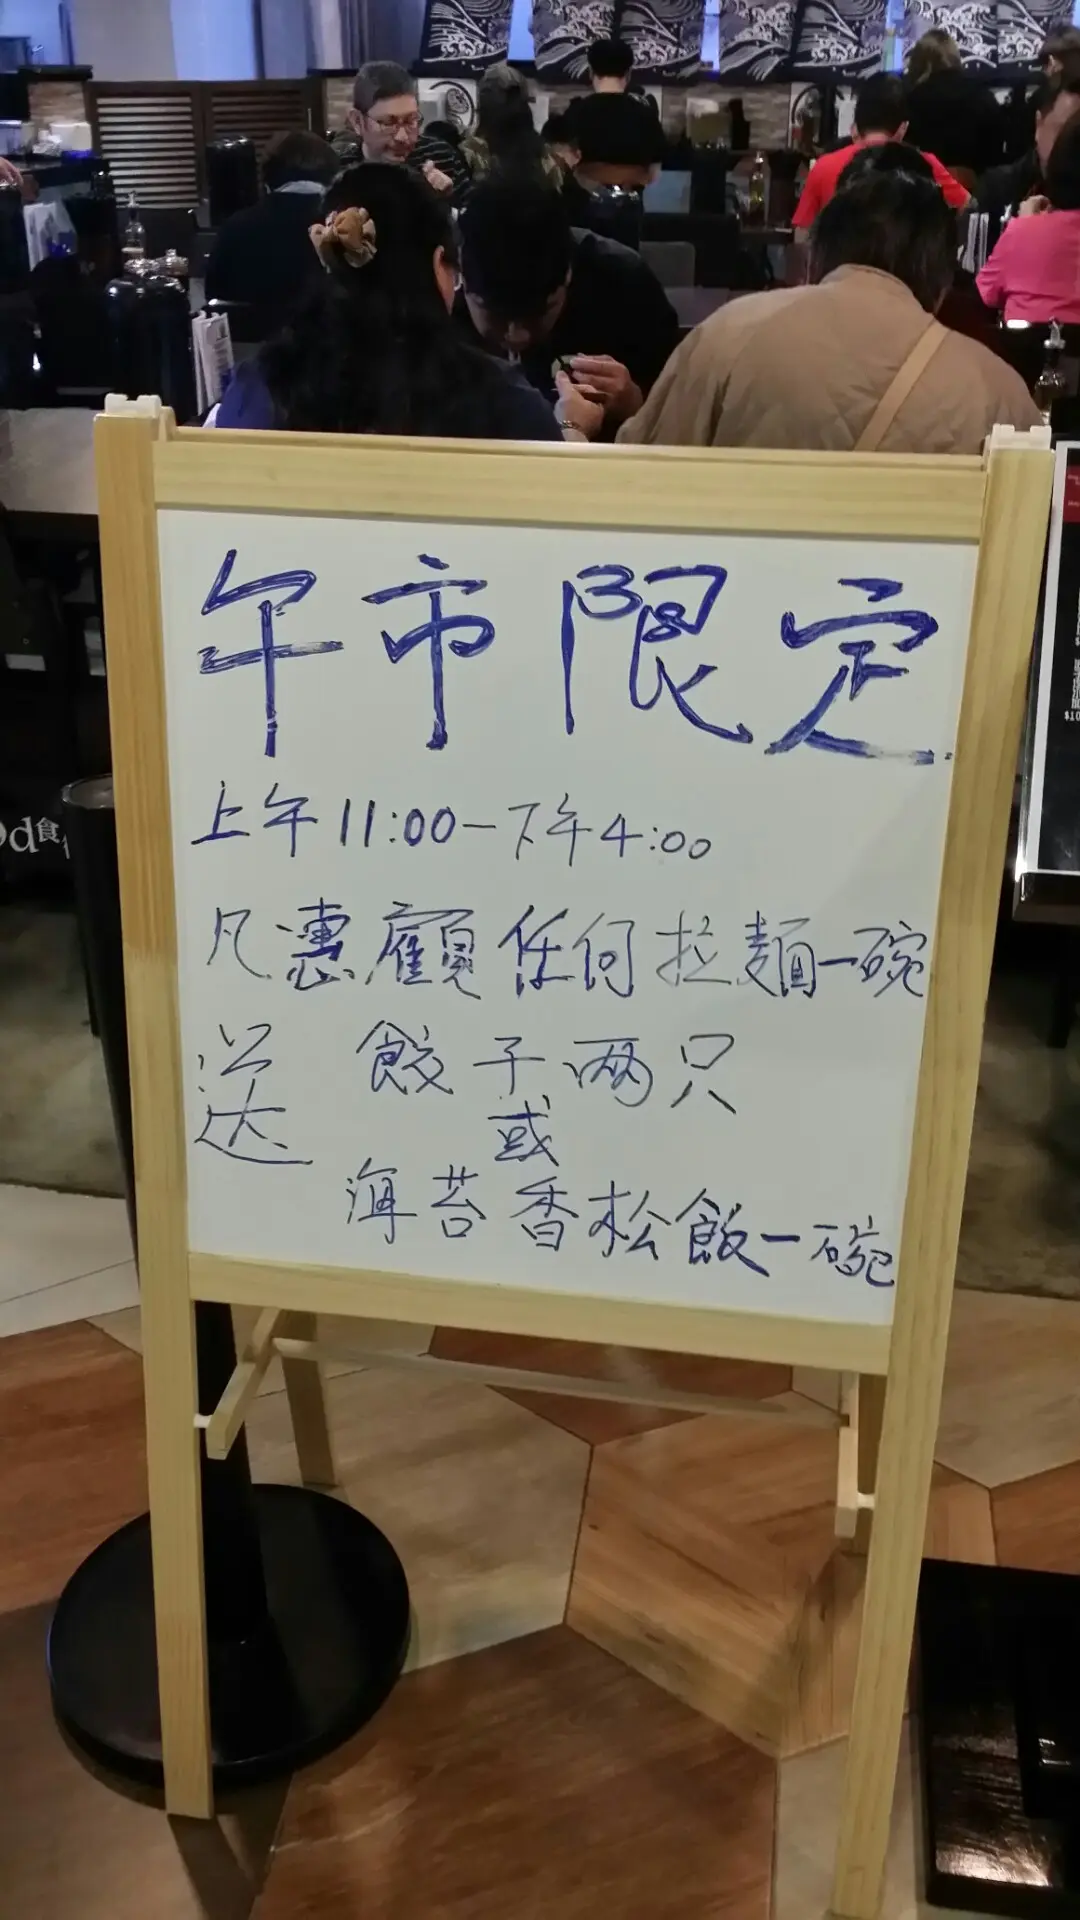 午市限定
上午11:00-下午4:00
凡惠顧任何拉麵一碗
送 餃子两只
或
海苔香松飯一碗
食
$10